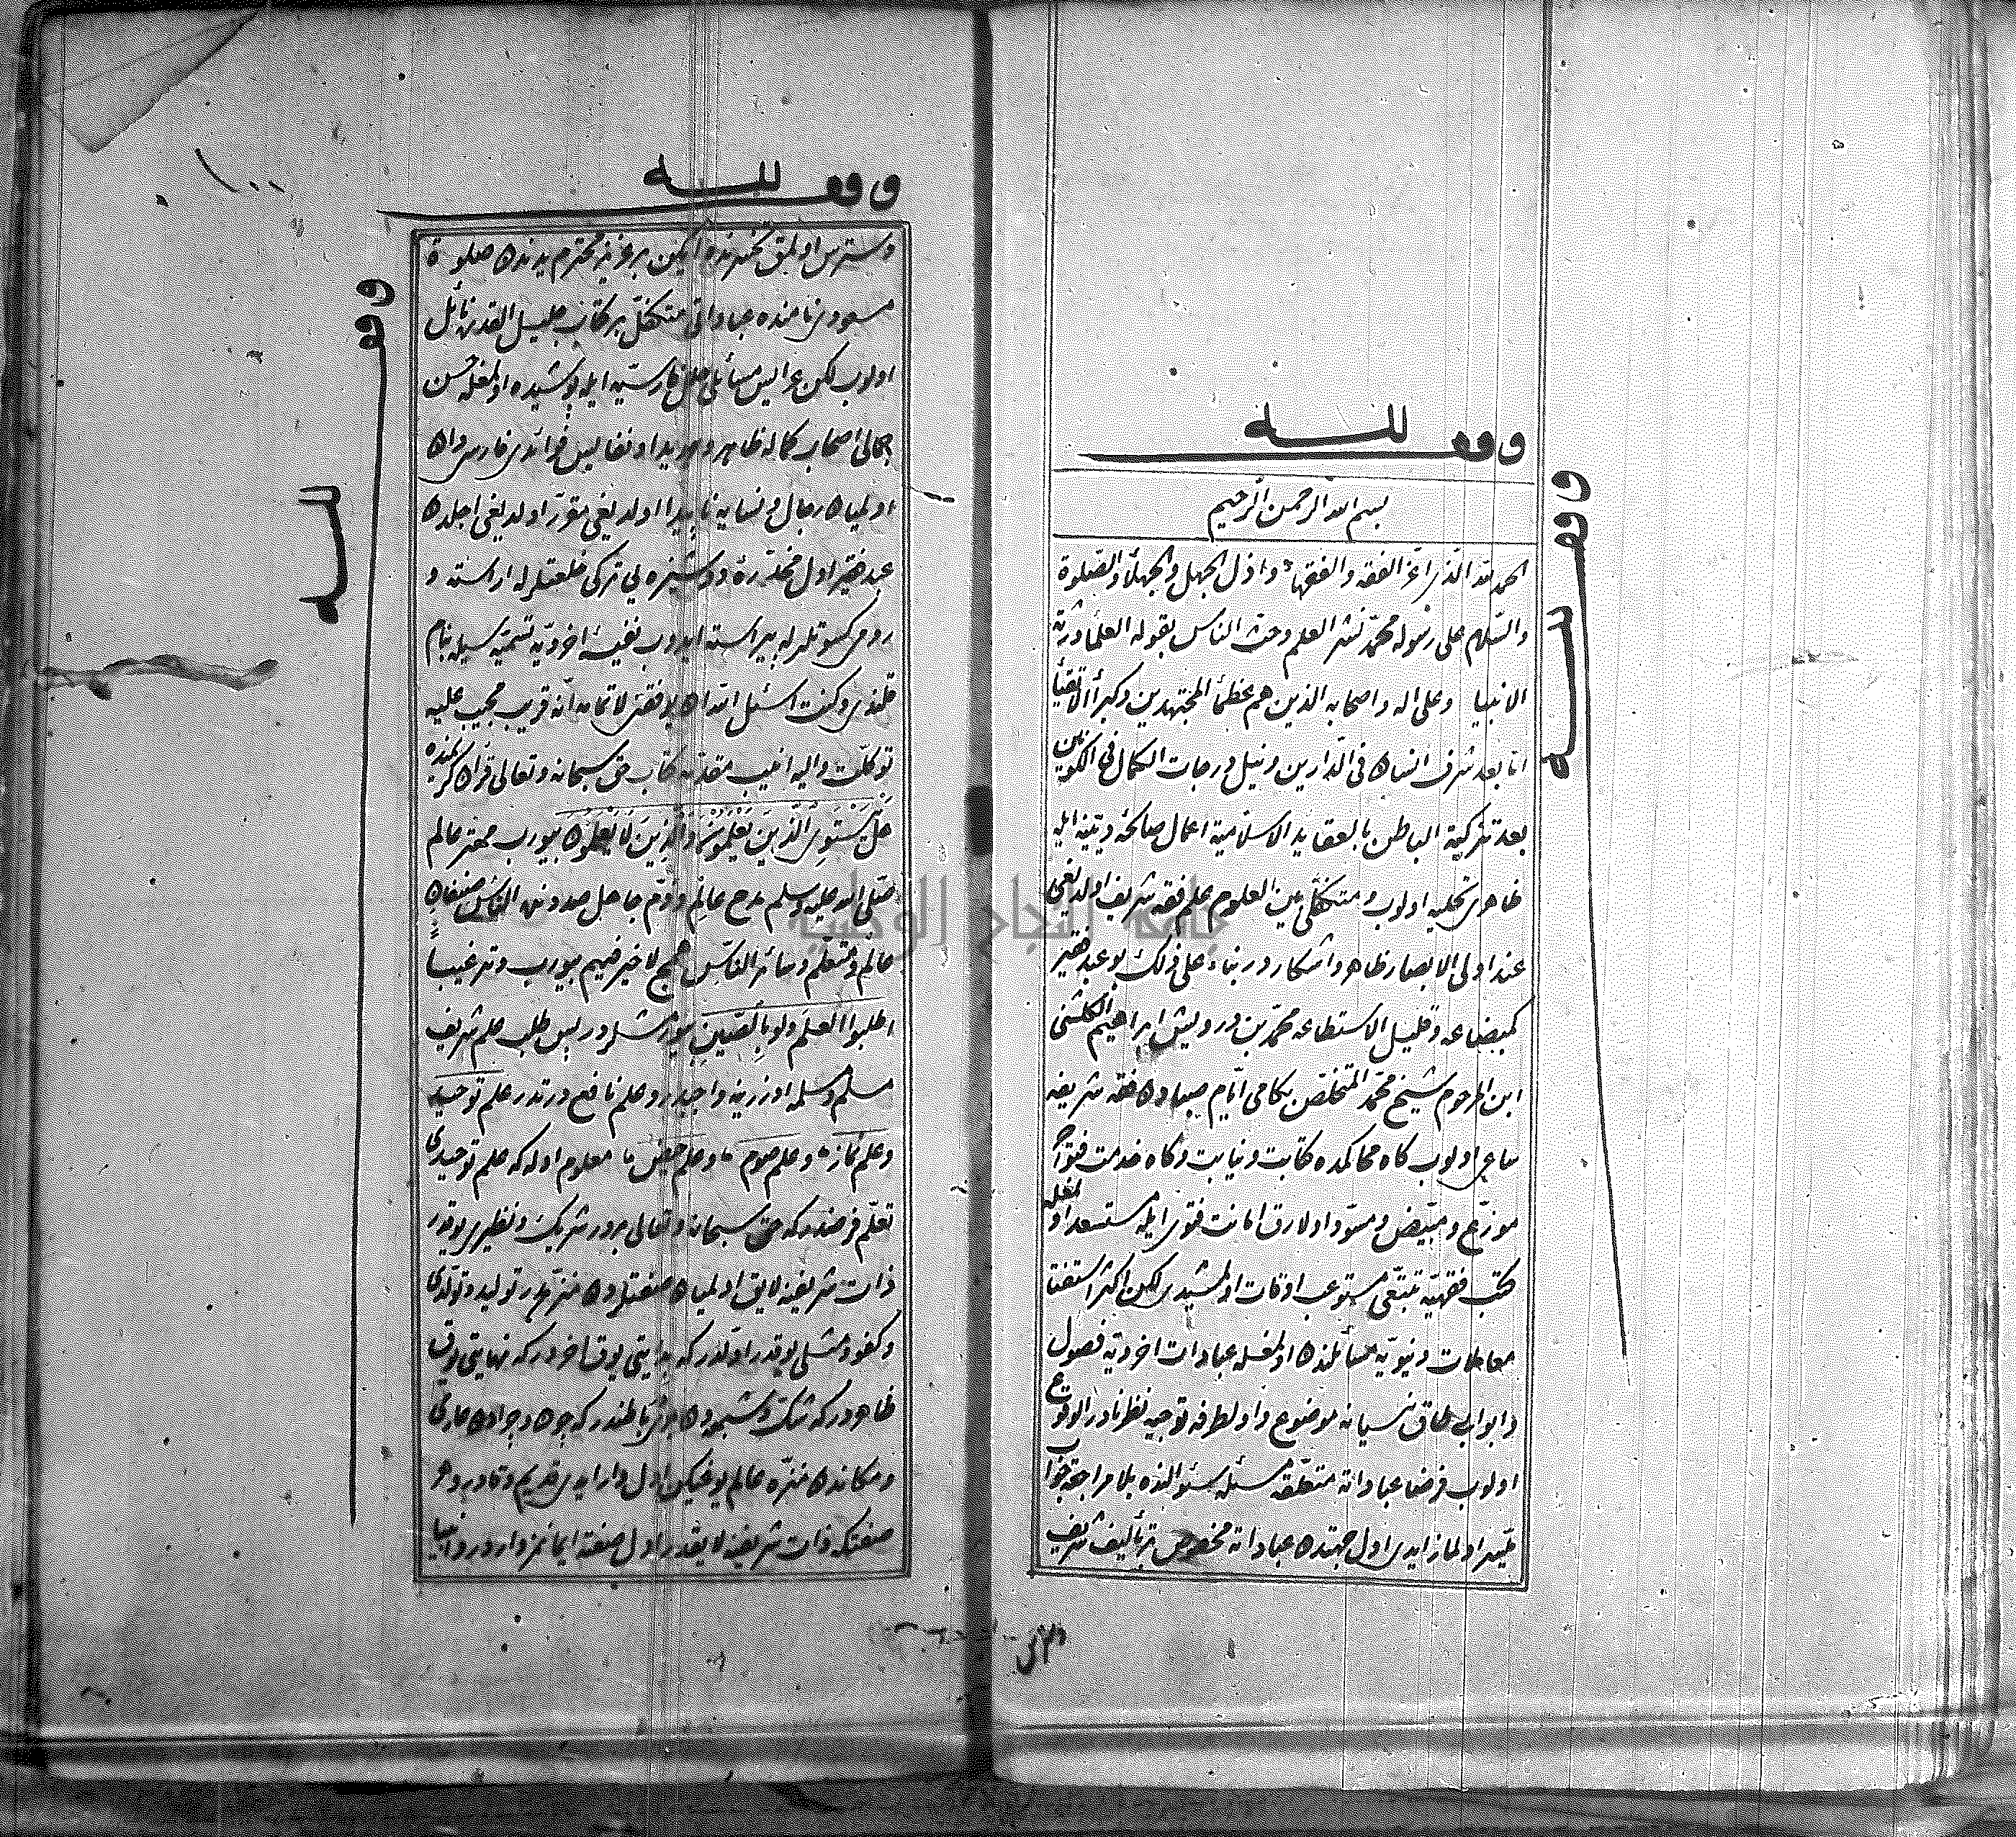 وقف لله
وقف لله
بسم الله الرحمن الرحيم
الحمد لله الذى اعز الفقه والفقهاء واذل الجهل والجهلاء والصلوة
والسلام على رسوله محمد نشر العلم وحث الناس بقوله العلماء ورثة
الانبيا وعلى اله واصحابه الذين هم عظماء المجتهدين وكبراء الاتقياء
اما بعد شرف انسان فى الدارين ونيل درجات الكمال فى الكونين
بعد تزكية الباطن بالعقايد الاسلامية اعمال صالحۀ دينيه ايله
ظاهرى تحليه اولوب ومتكفلى عين العلوم علم فقه شريف اولديغى
عند اولى الابصار ظاهر واشكار در بناء على ذلك بو عبد فقير
كمبضاعه وقليل الاستطاعه محمد بن درويش ابراهيم الكلشنى
ابن المرحوم شيخ محمد المتخلص بكامى ايام صباده فقه شريفه
ساعى اولوب كاه محاكمده كتابت ونيابت وكاه خدمت فتوا
موزع ومبيض ومسود اولارق امانت فتوى ايله مستسعد اولمغله
كتب فقهيه تتبعى مستوعب اوقات اولمشيدى لكن اكثر استفتا
معاملات دنيويه مسائلنده اولمغله عبادات اخرويه فصول
وابواب طاق نسيانه موضوع واولطرفه توجيه نظر نادر الوقوع
اولوب فرضا عباداته متعلقه مسئله سئوالنده بلا مراجعه جواب
ميسر اولماز ايدى اول جهتدن عباداته مخصوص بر تأليف شريف
وقف لله
وقف لله
دسترس اولمق ايكن بر عزيز محترم يدنده صلوة
مسعودى نامنده عباداتى متكفل بر كتاب جليل القدره نائل
اولوب لكن عرايس مسائلى حلل فارسيه ايله پوشيده اولمغله حسن
جمالى اصحاب كماله ظاهر وهويدا ونفايس فوائدى فارسى دان
اولميان رجال ونسايه ناپيدا اولديغى مقرر اولديغى اجلدن
عبد فقير اول مخدرۀ دوشيزه لى تركى خلعتلر له اراسته و
رومى كسوتلر له پيراسته ايدوب نفيسۀ اخرويه تسميه سيله بنام
قلندى وكنت اسئل الله ان يوفقنى لاتمامه انه قريب مجيب عليه
توكلت واليه انيب مقدمه كتاب حق سبحانه وتعالى قران كريمنده
هل يستوى الذين يعلمون والذين لا يعلمون بيورب مهتر عالم
صلى الله عليه وسلم مدح عالم وذم جاهل صددنده الناس صنفان
عالم ومتعلم وسائر الناس همج لا خير فيهم بيورب وترغيباً
اطلبوا العلم ولو بالصين بيورمشلر در پس طلب علم شريف
مسلم ومسلمه اوزرينه واجبدر وعلم نافع درتدر علم توحيد
وعلم نماز وعلم صوم وعلم حيض معلوم اوله كه علم توحيدى
تعلم فرضدر كه حق سبحانه وتعالى بردر شريك ونظيرى يوقدر
ذات شريفنه لايق اولميان صفتلردن منزهدر توليد وتولدى
وكفو ومثلى يوقدر اولدر كه بدايتى يوق اخردر كه نهايتى يوق
ظاهردر كه شك وشبهه دن باطندر كه چون وچرادن عارى
ومكاندن منزه عالم يوغيكن اول وار ايدى قديم وقادردر هر
صفتكه ذات شريفنه لايقدر اول صفته ايمانمز واردر وانبيا